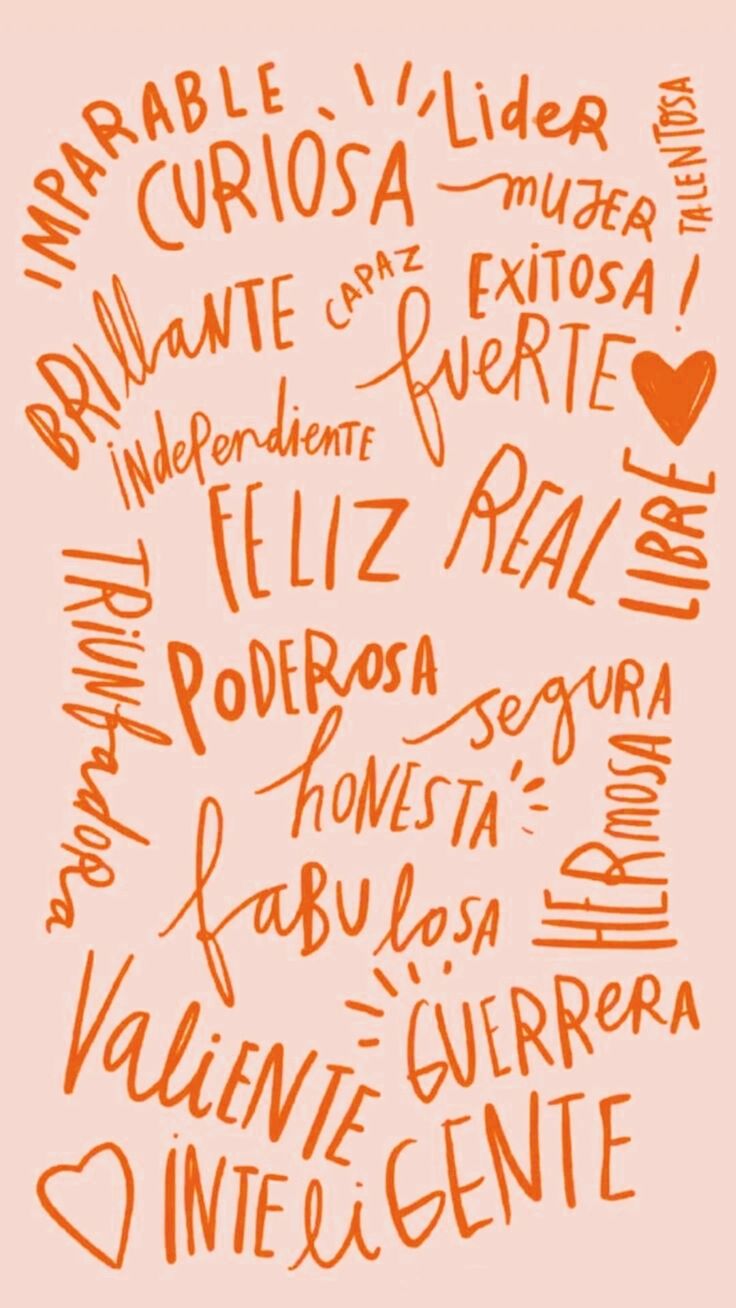 IMPARABLE
LideR
TALENTOSA
CURIOSA
MUJER
CAPAZ
EXiTOSA!
BRIllaNTE
fueRTE
iNdePendienTE
FELIZ
REAL
LIBRE
TRiUNfadoRa
PODEROSA
segURA
hONESTA
HERmOSA
faBUlosA
ValiENTE
GUERReRA
iNTEliGENTE